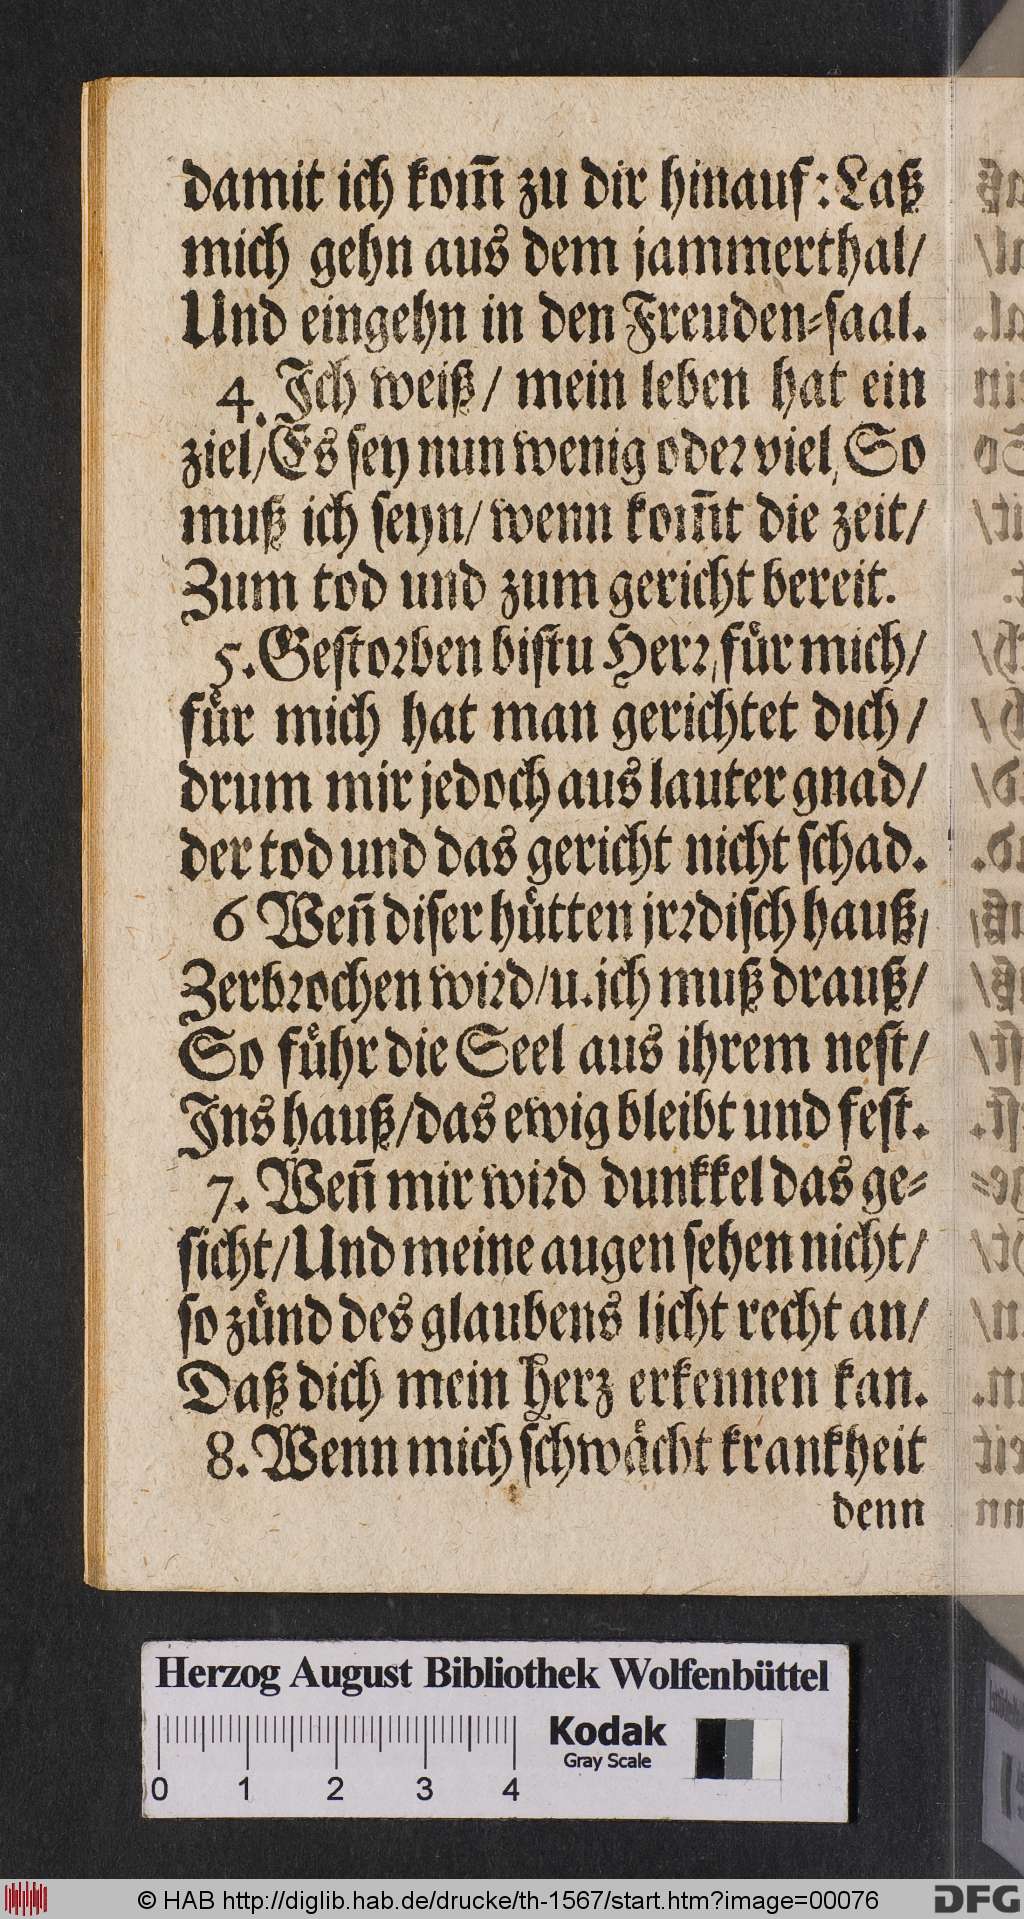 damit ich kom̃ zu dir hinauf: Laß
mich gehn aus dem jammerthal/
Und eingehn in den Freuden⸗saal.
4. Ich weiß/ mein leben hat ein
ziel/ Es sey nun wenig oder viel, So
muß ich seyn/ wenn kom̃t die zeit/
Zum tod und zum gericht bereit.
5. Gestorben bistu Herr, fuͤr mich/
fuͤr mich hat man gerichtet dich/
drum mir jedoch aus lauter gnad/
der tod und das gericht nicht schad.
6 Weñ diser huͤtten jrrdisch hauß/
Zerbrochen wird/ u. ich muß drauß/
So fuͤhr die Seel aus ihrem nest/
Ins hauß/ das ewig bleibt und fest.
7. Weñ mir wird dunkkel das ge⸗
sicht/ Und meine augen sehen nicht/
so zuͤnd des glaubens licht recht an/
Daß dich mein Herz erkennen kan.
8. Wenn mich schwaͤcht krankheit
denn
Herzog August Bibliothek Wolfenbüttel
Kodak
Gray Scale
0 1 2 3 4
© HAB http://diglib.hab.de/drucke/th-1567/start.htm?image=00076
DFG